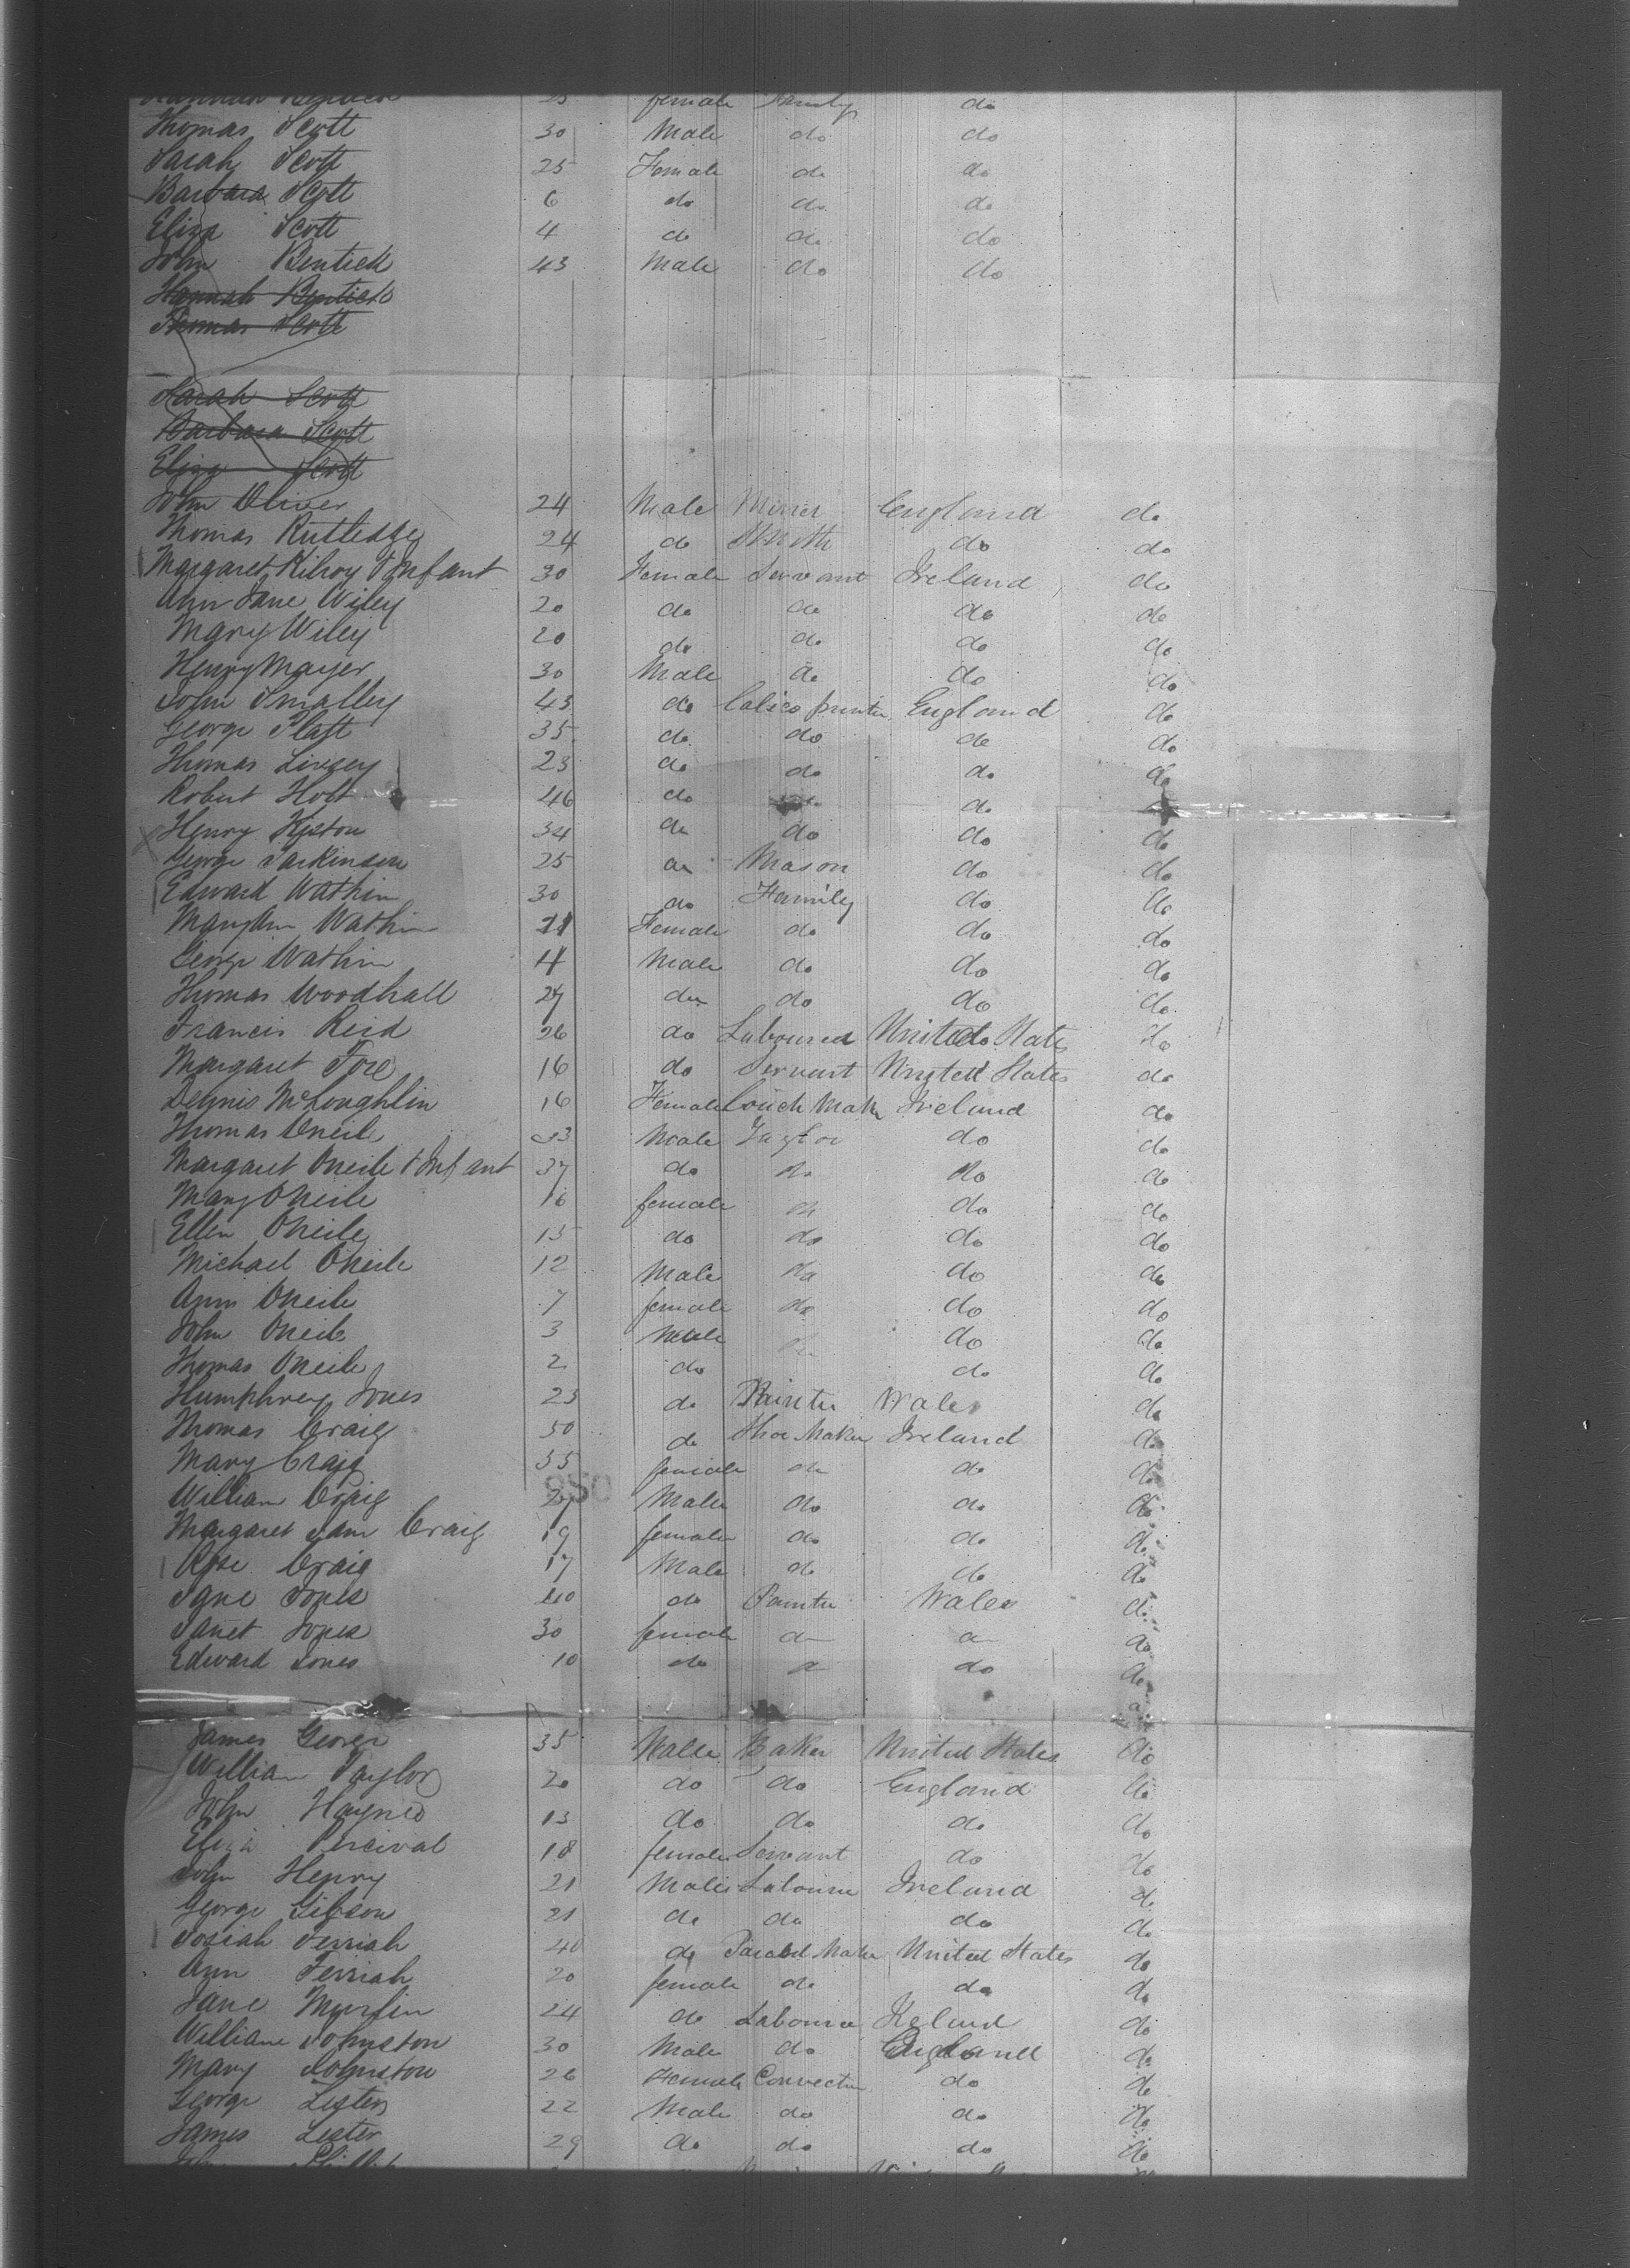 23 female Family do
Thomas Scott 30 Male do do
Sarah Scott 25 Female do do
Barbara Scott 6 do do do
Eliza Scott 4 do do do
John Bentick 43 Male do do
Hannah Bentick
Thomas Scott
Sarah Scott
Barbara Scott
Eliza Scott
John Oliver 24 Male Miner England do
Thomas Rutledge 24 do Smith do do
Margaret Kilroy & Infant 30 Female Servant Ireland do
Ann Jane Wiley 20 do do do do
Mary Wiley 20 do do do do
Henry Mayer 30 Male do do do
John Smalley 43 do Calico printer England do
George Platt 35 do do do do
Thomas Livsey 23 do do do do
Robert Holt 46 do do do
Henry 34 do do do do
George Parkinson 25 do Mason do do
Edward Watkin 30 do Family do do
Maryann Watkin 21 Female do do do
George Watkin 4 Male do do do
Thomas Woodhall 27 do do do do
Francis Reid 26 do Labourer United States do
Margaret 16 do Servant United States do
Dennis McLoughlin 16 Female Coach Maker Ireland do
Thomas Oneile Male Taylor do do
Margaret Oneile & Infant 37 do do do do
Mary Oneile 16 female do do do
Ellen Oneile 15 do do do do
Michael Oneile 12 Male do do do
Ann Oneile 7 female do do do
John Oneile 3 Male do do do
Thomas Oneile 2 do do do
Humphrey Jones 23 do Painter Wales do
Thomas Craig 50 do Shoe Maker Ireland do
Mary Craig 55 female do do do
William Craig 27 Male do do do
Margaret Jane Craig 19 female do do do
Rose Craig 17 Male do do do
Jane Jones 40 do Painter Wales do
Janet Jones 30 female do do do
Edward Jones 10 do do do do
James George 35 Male Baker United States do
William Taylor 20 do do England do
John Haynes 13 do do do do
Eliza Percival 18 female Servant do do
John Henry 21 Male Labourer Ireland do
George Gibson 21 do do do do
Josiah Ferriah 40 do Maker United States do
Ann Ferriah 20 female do do do
Jane Murlin 24 do Labourer Ireland do
William Johnston 30 Male do England do
Mary Johnston 26 Female do do
George Lester 22 Male do do do
James Lester 29 do do do do